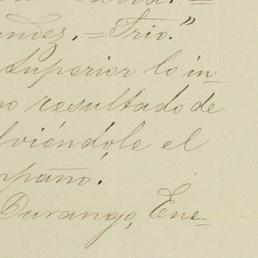 andez,=Trio."
Superior lo in-
no resultado de
lviéndole el
mpaño.
Durango, Ene-